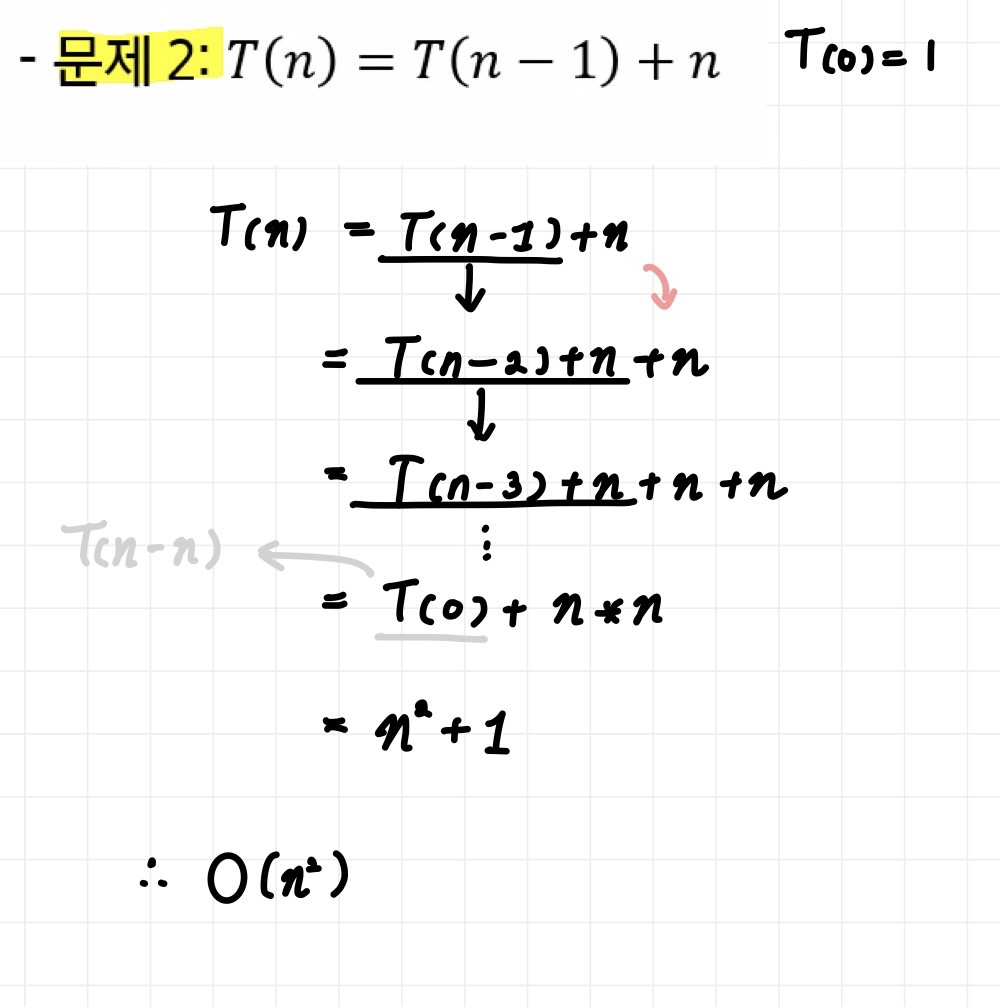 - 문제 2: T(n) = T(n − 1) + n T(0) = 1
T(n) = T(n-1) + n
= T(n-2) + n + n
= T(n-3) + n + n + n
⋮
T(n-n) ←
= T(0) + n * n
= n² + 1
∴ O(n²)